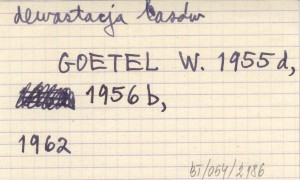 dewastacja lasów
GOETEL W. 1955d,
1956b,
1962
BT/054/2186